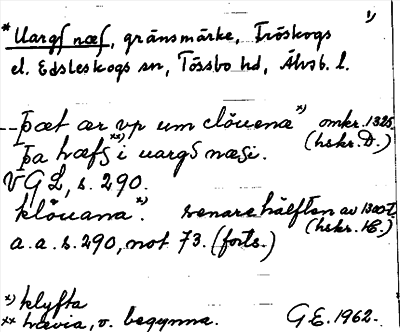 1)
*Uargs næs, gränsmärke, Fröskogs
el. Edsleskogs sn, Tössbo hd, Älvsb. l.
--Þæt ær vp um clöuena x) omkr. 1325.
(hskr. D.)
Þa hæfs xx) i uargs næsi.
VGL, s. 290.
klöuana x). senare hälften av 1300-t.
(hskr. H.)
a.a.s. 290, not 73. (forts.)
x) klyfta
xx hævia, v. begynna. G E. 1962.